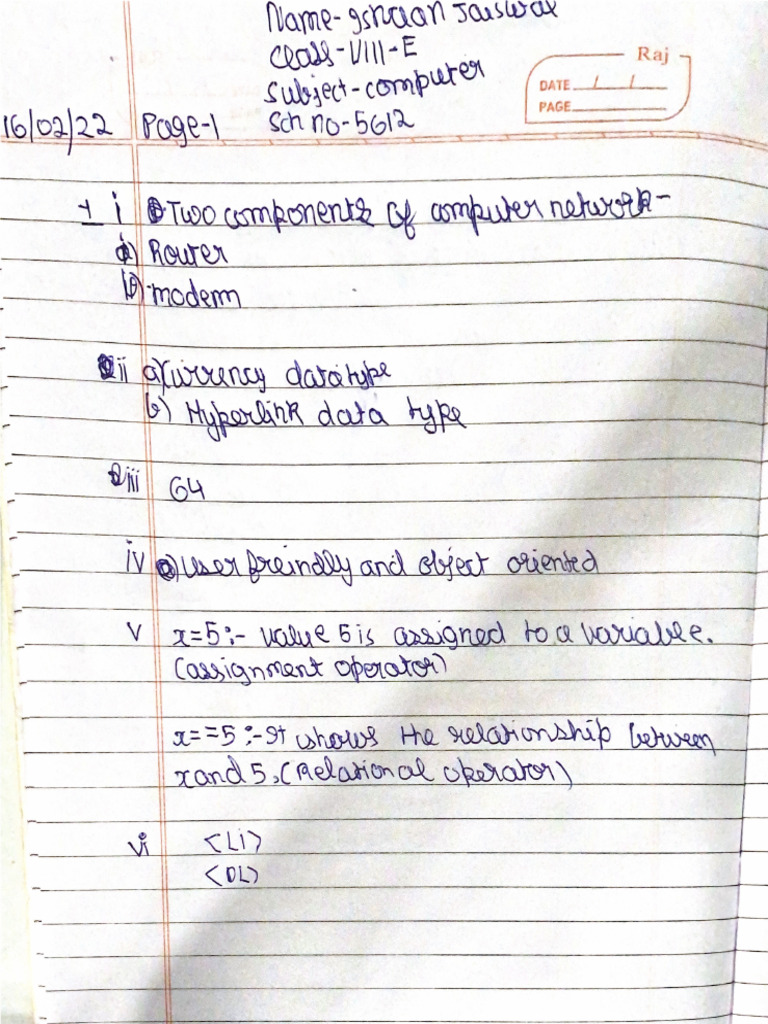 Name- Ishaan Jaiswal
Class-VIII-E
Subject-computer
Sch no-5612
Raj
DATE
PAGE
16/02/22 Page-1
1 i Two components of computer network-
a) Router
b) modem
ii a) Currency data type
b) Hyperlink data type
iii 64
iv a) User freindly and object oriented
v x=5:- value 5 is assigned to a variable.
(assignment operator)
x==5:- It shows the relationship between
x and 5, (Relational operator)
vi <Li>
<OL>